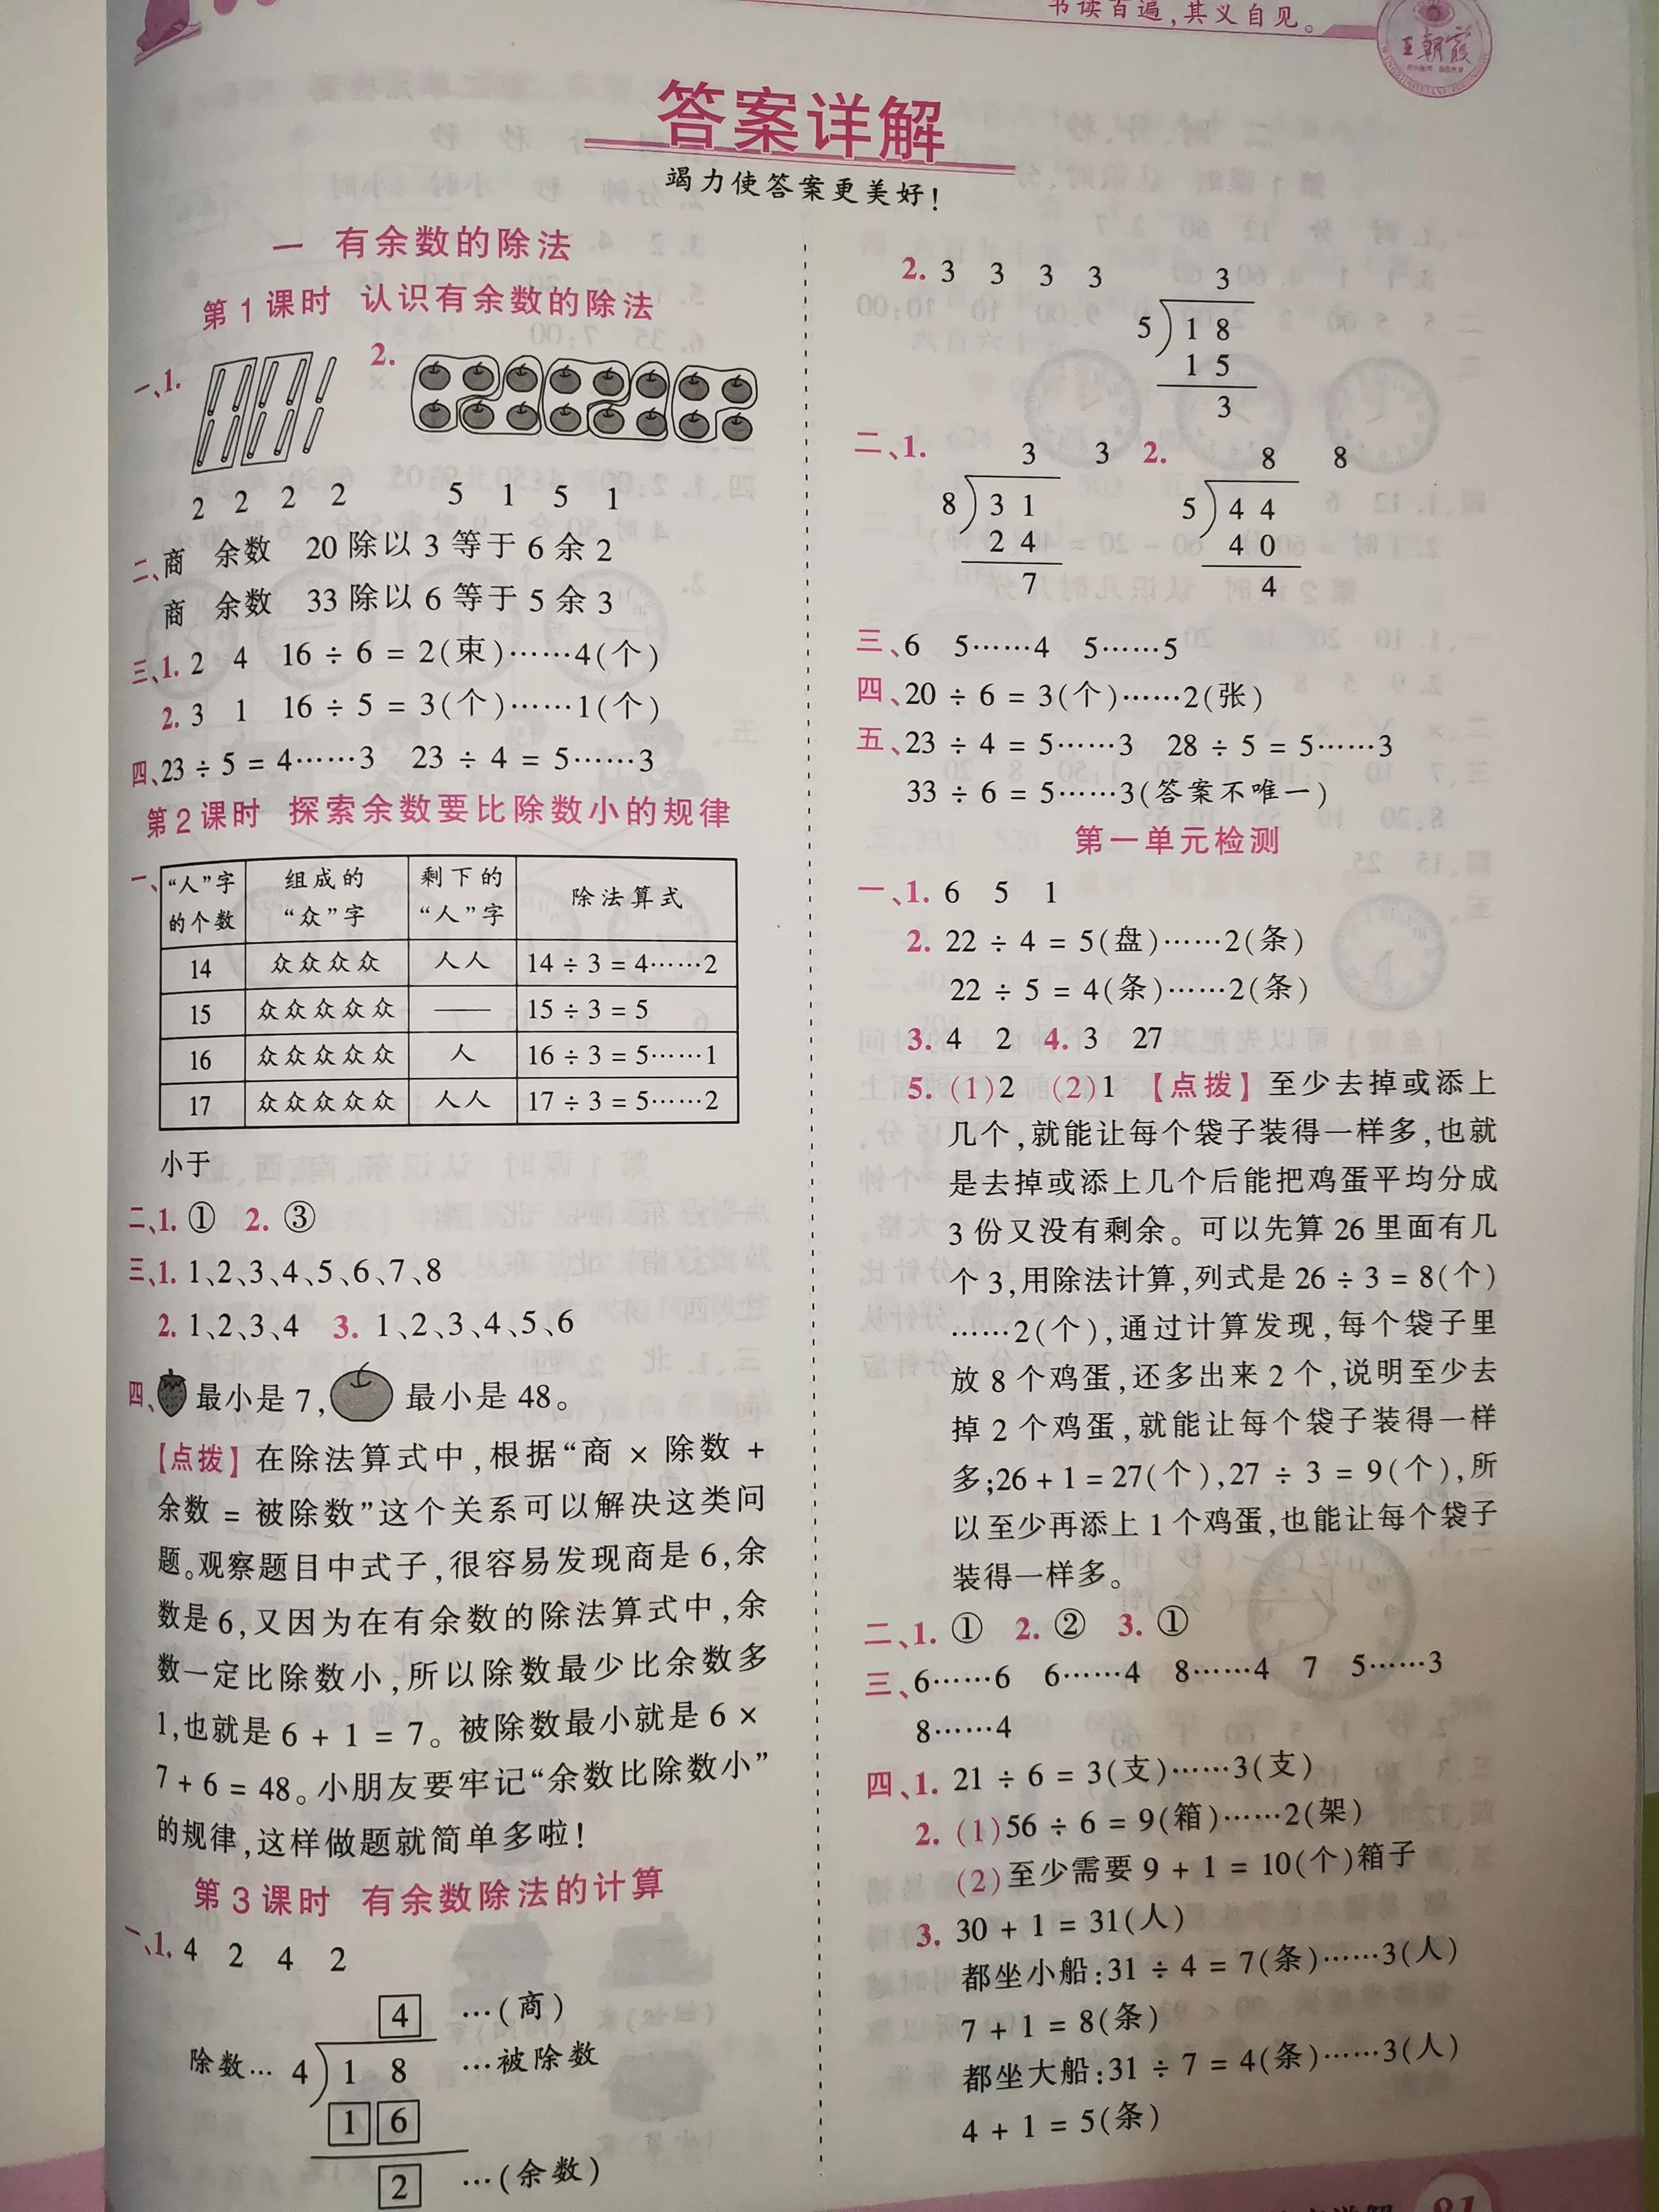 书读百遍,其义自见。
王朝霞
答案详解
竭力使答案更美好!
一 有余数的除法
第1课时 认识有余数的除法
一、1. 2.
2 2 2 2 5 1 5 1
二、商 余数 20除以3等于6余2
商 余数 33除以6等于5余3
三、1. 2 4 16÷6=2(束)……4(个)
2. 3 1 16÷5=3(个)……1(个)
四、23÷5=4……3 23÷4=5……3
第2课时 探索余数要比除数小的规律
一、
“人”字的个数 组成的“众”字 剩下的“人”字 除法算式
14 众众众众 人人 14÷3=4……2
15 众众众众众 —— 15÷3=5
16 众众众众众 人 16÷3=5……1
17 众众众众众 人人 17÷3=5……2
小于
二、1. ① 2. ③
三、1. 1、2、3、4、5、6、7、8
2. 1、2、3、4 3. 1、2、3、4、5、6
四、最小是7, 最小是48。
【点拨】在除法算式中,根据“商×除数+
余数=被除数”这个关系可以解决这类问
题。观察题目中式子,很容易发现商是6,余
数是6,又因为在有余数的除法算式中,余
数一定比除数小,所以除数最少比余数多
1,也就是6+1=7。被除数最小就是6×
7+6=48。小朋友要牢记“余数比除数小”
的规律,这样做题就简单多啦!
第3课时 有余数除法的计算
一、1. 4 2 4 2
4 …(商)
除数… 4 1 8 …被除数
1 6
2 …(余数)
2. 3 3 3 3 3
5 1 8
1 5
3
二、1. 3 3 2. 8 8
8 3 1 5 4 4
2 4 4 0
7 4
三、6 5……4 5……5
四、20÷6=3(个)……2(张)
五、23÷4=5……3 28÷5=5……3
33÷6=5……3(答案不唯一)
第一单元检测
一、1. 6 5 1
2. 22÷4=5(盘)……2(条)
22÷5=4(条)……2(条)
3. 4 2 4. 3 27
5. (1)2 (2)1 【点拨】至少去掉或添上
几个,就能让每个袋子装得一样多,也就
是去掉或添上几个后能把鸡蛋平均分成
3份又没有剩余。可以先算26里面有几
个3,用除法计算,列式是26÷3=8(个)
……2(个),通过计算发现,每个袋子里
放8个鸡蛋,还多出来2个,说明至少去
掉2个鸡蛋,就能让每个袋子装得一样
多;26+1=27(个),27÷3=9(个),所
以至少再添上1个鸡蛋,也能让每个袋子
装得一样多。
二、1. ① 2. ② 3. ①
三、6……6 6……4 8……4 7 5……3
8……4
四、1. 21÷6=3(支)……3(支)
2. (1)56÷6=9(箱)……2(架)
(2)至少需要9+1=10(个)箱子
3. 30+1=31(人)
都坐小船:31÷4=7(条)……3(人)
7+1=8(条)
都坐大船:31÷7=4(条)……3(人)
4+1=5(条)
81